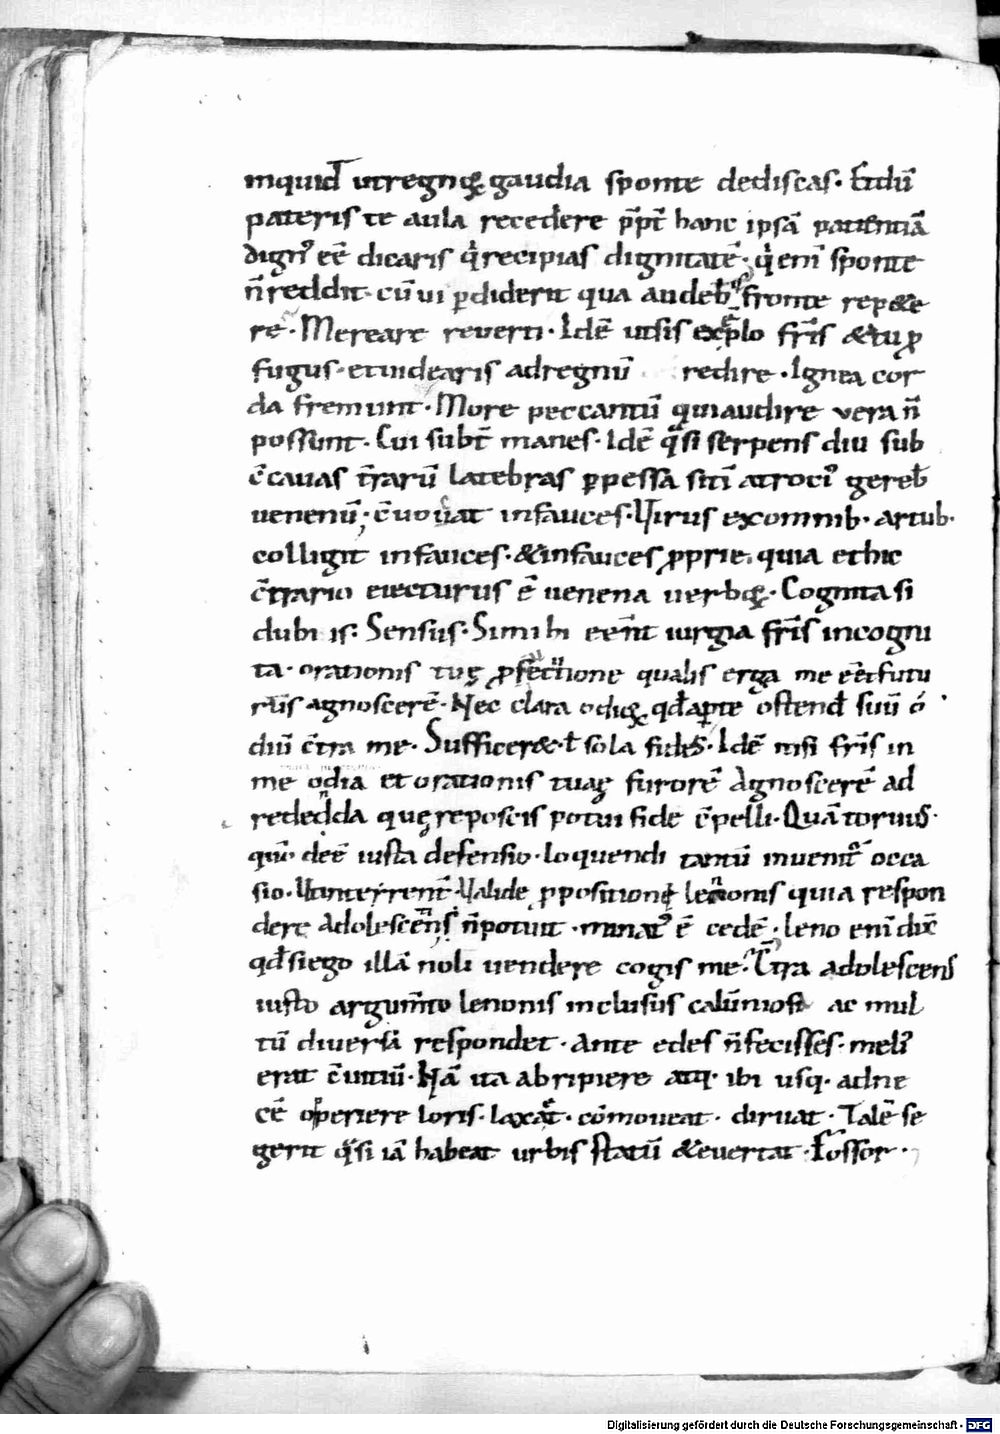 inquid̄ ut regnoꝝ gaudia sponte dediscas. Et dū
pateris te aula recedere ꝓpt̄ hanc ipsā patientiā
dignꝰ eē dicaris q recipias dignitatē. q eni sponte
n̄ reddit. cū ui ꝑdiderit qua audeb fronte repete
re. Mereare reuerti. Idē ut sis exēplo fr̄is & tu ꝓ
fugus. et uidearis ad regnū redire. Ignea cor
da fremunt. More peccantū qui audire uera n̄
possunt. Cui subt̄ manes. Idē qͣsi serpens diu sub
c̄cauas t̄rarū latebras ꝑpessa siti atrociꝰ gereb
uenenū. c̄uouat in fauces. Virus ex omnib. artub.
colligit in fauces. & in fauces ꝓprie. quia et hic
c̄trario eiecturus ē uenena uerboꝝ. Cognita si
dubiis: Sensus. Si mihi eēnt iurgia fr̄is incogni
ta. orationis tuę ꝓfectione qualis erga me eēt futu
rus agnoscerē. Nec clara odioꝝ qd̄ aꝑte ostend̄ suū ó
diū c̄tra me. Sufficeret. t̄ sola fides. Idē nisi fr̄is in
me odia et orationis tuaę furorē agnoscerē ad
reddenda quę reposcis potui fide c̄pelli. Quā toruus.
quō deē iusta defensio. loquendi tantū inuenit occa
sio. Valide ꝓpositione lenonis quia respon
dere adolescens n̄ potuit. minatꝰ ē cedē. leno eni dix̄
qd̄ si ego illā noli uendere cogis me. C̄tra adolescens
iusto argum̄to lenonis inclusus calūniosa ac mul
tū diuersa respondet. Ante edes n̄ fecisses. meliꝰ
erat c̄uitiū. Nā ita abripiere atq. ibi usq. ad ne
cē operiere loris. laxat. cōmoueat. diruat. Talē se
gerit qͣsi iā habeat urbis statū & euertat. Fossor.
Digitalisierung gefördert durch die Deutsche Forschungsgemeinschaft - DFG